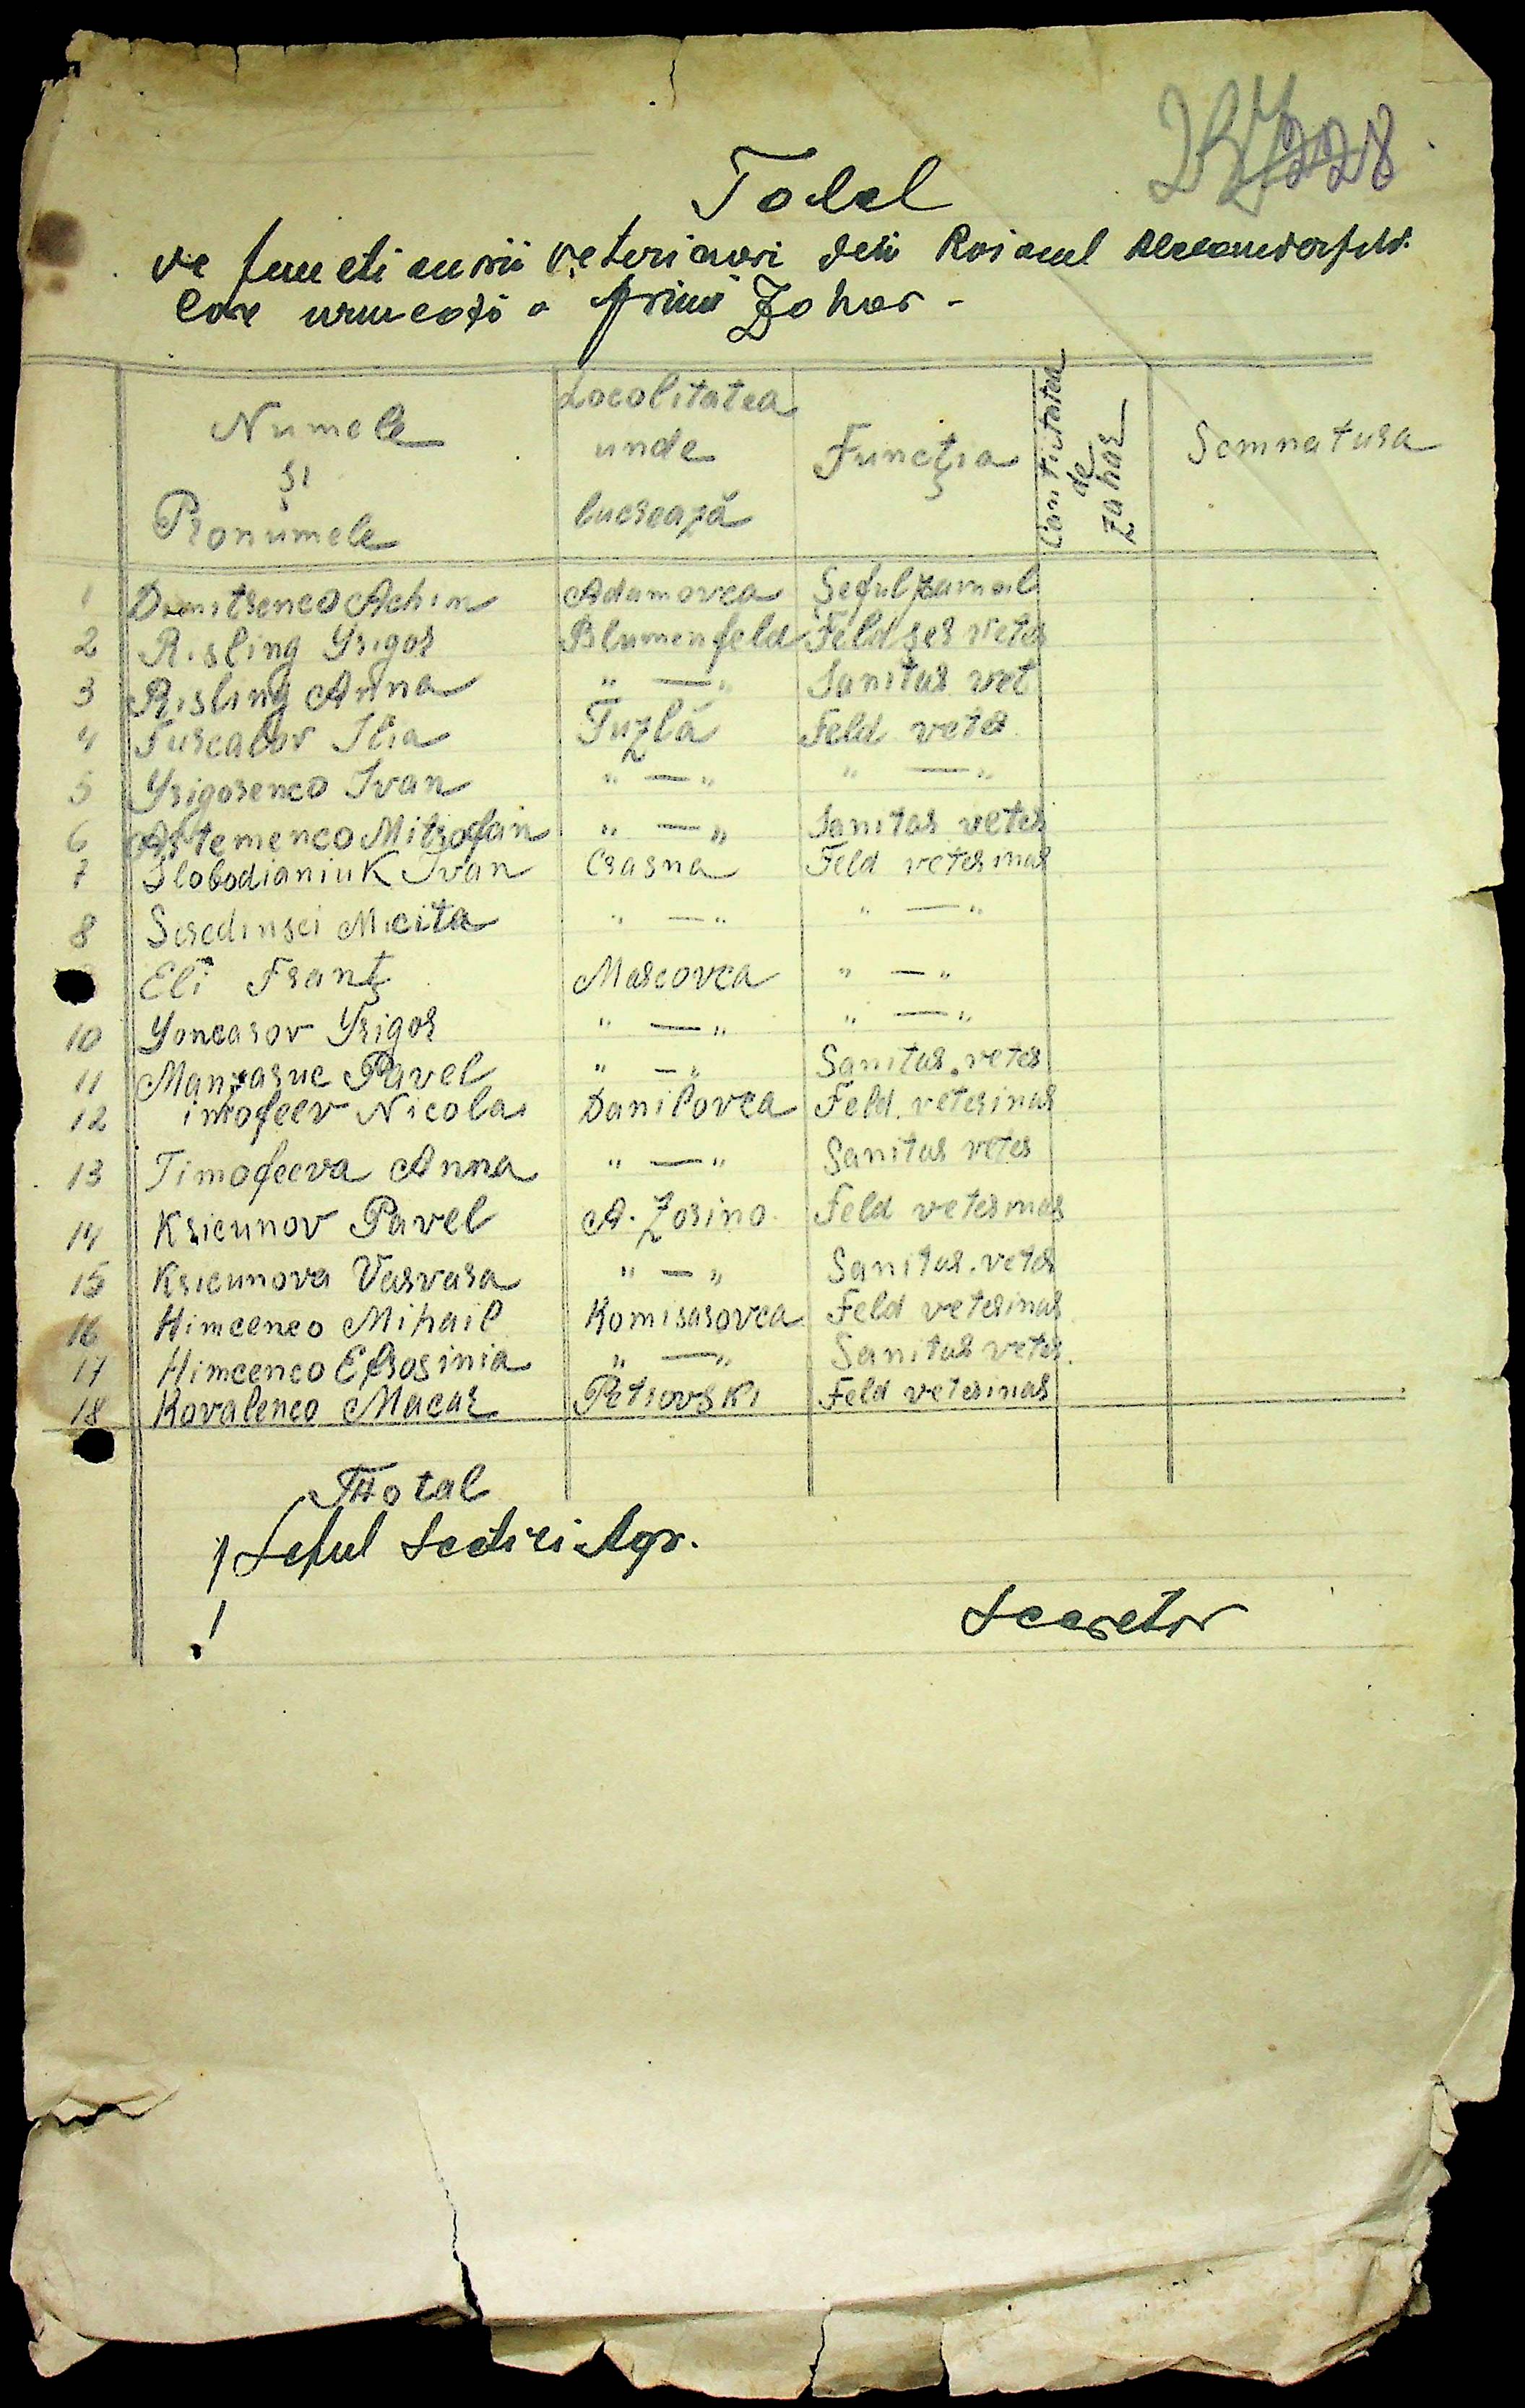 228
Tabel
de functionarii veterinari din Raionul Alexanderfeld.
care urmeaza a primi Zahar -
Numele și Pronumele | Localitatea unde lucrează | Funcția | Cantitatea de zahar | Semnatura
1 Dimitrenco Achim | Adamovca | Șeful zamail
2 Risling Grigor | Blumenfeld | Feldșer veter
3 Risling Anna | " — " | Sanitar vet
4 Turcalov Ilia | Tuzlă | Feld veter
5 Grigorenco Ivan | " — " | " — "
6 Artemenco Mitrofan | " — " | Sanitar veter
7 Slobodianiuk Ivan | Crasna | Feld veterinar
8 Seredinsci Micita | " — " | " — "
Eli Franț | Marcovca | " — "
10 Goncarov Grigor | " — " | " — "
11 Manzaruc Pavel | " — " | Sanitar. veter
12 imofeev Nicolai | Danilovca | Feld. veterinar
13 Timofeeva Anna | " — " | Sanitar veter
14 Kricunov Pavel | A. Zorino. | Feld veterinar
15 Kricunova Varvara | " — " | Sanitar. veter
16 Himcenco Mihail | Komisarovca | Feld veterinar
17 Himcenco Efrosinia | " — " | Sanitar veter.
18 Kovalenco Macar | Petrovski | Feld veterinar
Total
Seful Sectiei Agr.
Secretar